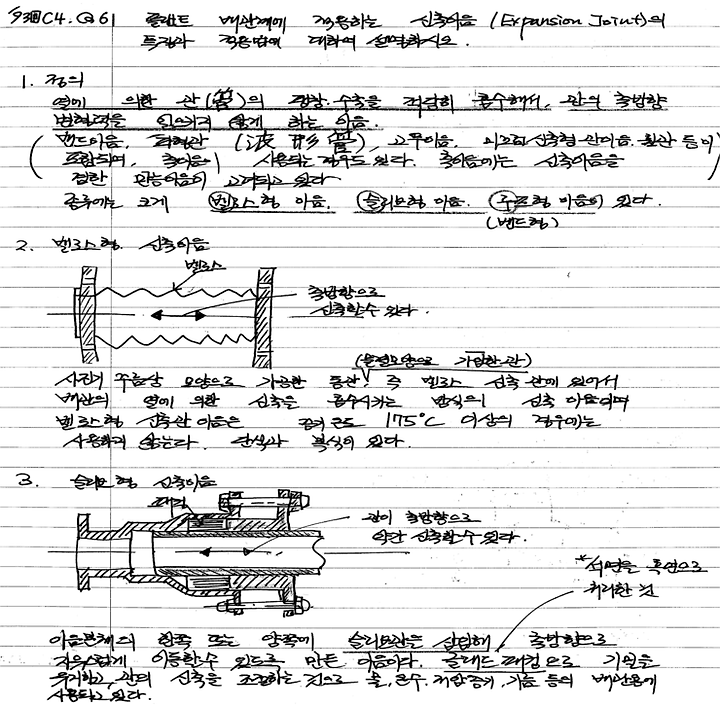 93회C4.Q6) 플랜트 배관계에 적용하는 신축이음 (Expansion Joint)의
특징과 적용방법에 대하여 설명하시오.
1. 정의
열에 의한 관(管)의 팽창·수축을 적절히 흡수해서, 관의 축방향
변형력을 일으키지 않게 하는 이음.
밴드이음, 파형관 (波形管), 고무이음, 미끄럼신축형 관이음, 활관 등이
포함되며, 축이음이 사용되는 경우도 있다. 축이음에는 신축이음을
겸한 만능이음이 고려되고 있다
종류에는 크게 벨로스형 이음, 슬리브형 이음, 루프형 이음이 있다.
(밴드형)
2. 벨로스형 신축이음
벨로스
축방향으로
신축할수 있다.
(물결모양으로 가공한 관)
주름상 모양으로 가공한 통관, 즉 벨로스 신축 관에 있어서
배관의 열에 의한 신축을 흡수시키는 방식의 신축 이음이며
벨로스형 신축관 이음은 증기 온도 175°C 이상의 경우에는
사용하지 않는다. 단식과 복식이 있다.
3. 슬리브형 신축이음
패킹
관이 축방향으로
약간 신축할수 있다.
*석면을 흑연으로
처리한 것
이음본체의 한쪽 또는 양쪽에 슬리브관을 삽입해 축방향으로
자유스럽게 이동할수 있도록 만든 이음이다. 글래드 패킹으로 기밀을
유지하고, 관의 신축을 조절하는 것으로 물, 온수, 저압증기, 기름 등의 배관용에
사용되고 있다.